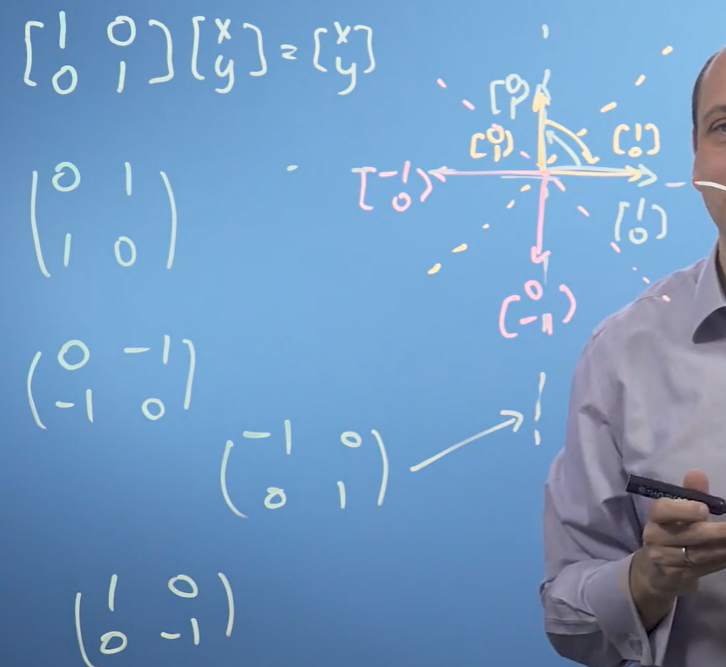 [1 0] [x] = [x]
[0 1] [y] [y]
(0 1)
(1 0)
(0 -1)
(-1 0)
(-1 0)
(0 1)
(1 0)
(0 -1)
[0]
[1]
[0]
[1]
[1]
[0]
[-1]
[0]
[1]
[0]
(0)
(-1)